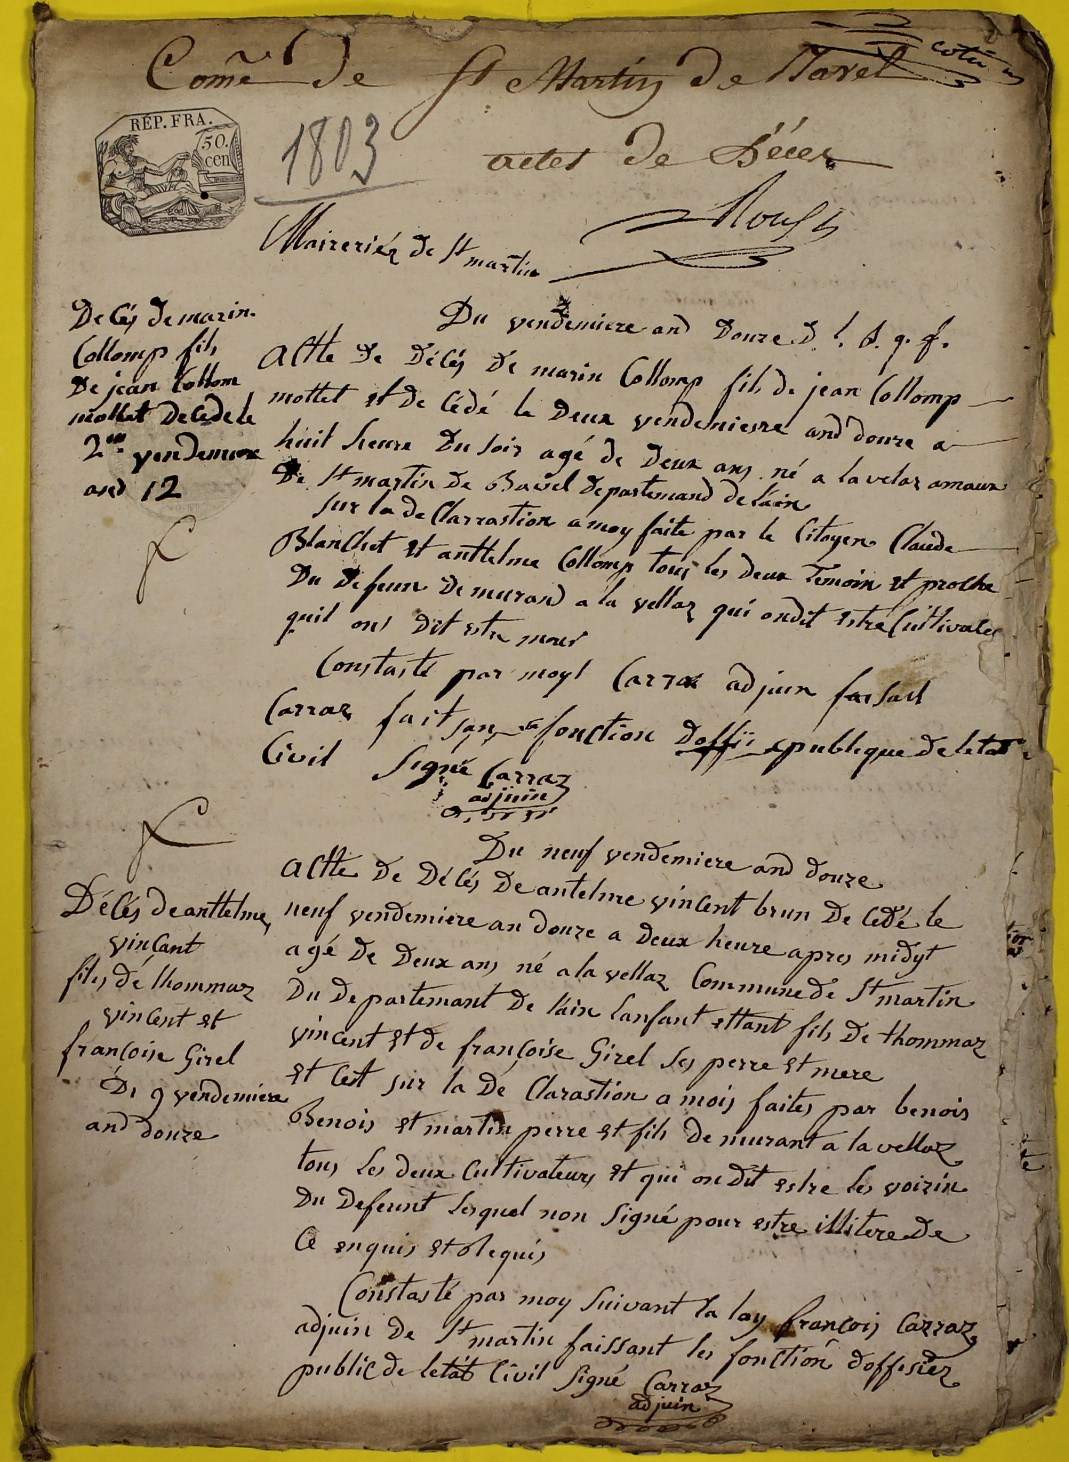 Come de St Martin de Bavel
cotté
REP. FRA.
50.
cen
1803
actes de Déces
Maireriéz de St martin
Decés de marin
Collomp fils
De jean Collom
mottet Decedé le
2me vendemiere
and 12
Du vendemiere and Douze D. l. R. q. f.
Actte de Décés De marin Collomp fils de jean Collomp
mottet et De Cédé le Deux vendemierre and douze a
huit heure Du soir agé de Deux ans né a la velaz amaux
De St martin De Bavel Departemand de l'ain
sur la de Clarrastion a moy faite par le Citoyen Claude
Blanchet et anttelme Collomp tous les deux Temoin et proche
Du Defeun Demurand a la vellaz qui ondit estre Cultivates
quil ons Dit estre mour
Constasté par moy Carraz adjuin faisant
Carraz fait san fonction Doffii publique de letat
Civil Signé Carraz
adjuin
Du neuf vendemiere and douze
Décés de anttelme
vincant
fils dé thommaz
vincent et
françoise Girel
Du 9 vendemiere
and douze
Actte De Décés De antelme vincent brun De Cedé le
neuf vendemiere an douze a Deux heure apres midyt
agé De Deux ans né a la vellaz Commune de St martin
Du Departemant De l'ain lanfant ettant fils Dé thommaz
vincent et de françoise Girel Ses perre et mere
et Cest sur la Dé Clarastion a mois faites par benois
Benois et martin perre et fils De murant a la vellaz
tous les deux Cultivateurs et qui on Dit estre les voizin
Du Defeunt lesquel non Signé pour estre illitere De
Ce enquis et Requis
Constasté par moy Suivant la loy françois Carraz
adjuin De St martin faissant les fonctioné doffisiez
public de letat Civil Signé Carraz
adjuin